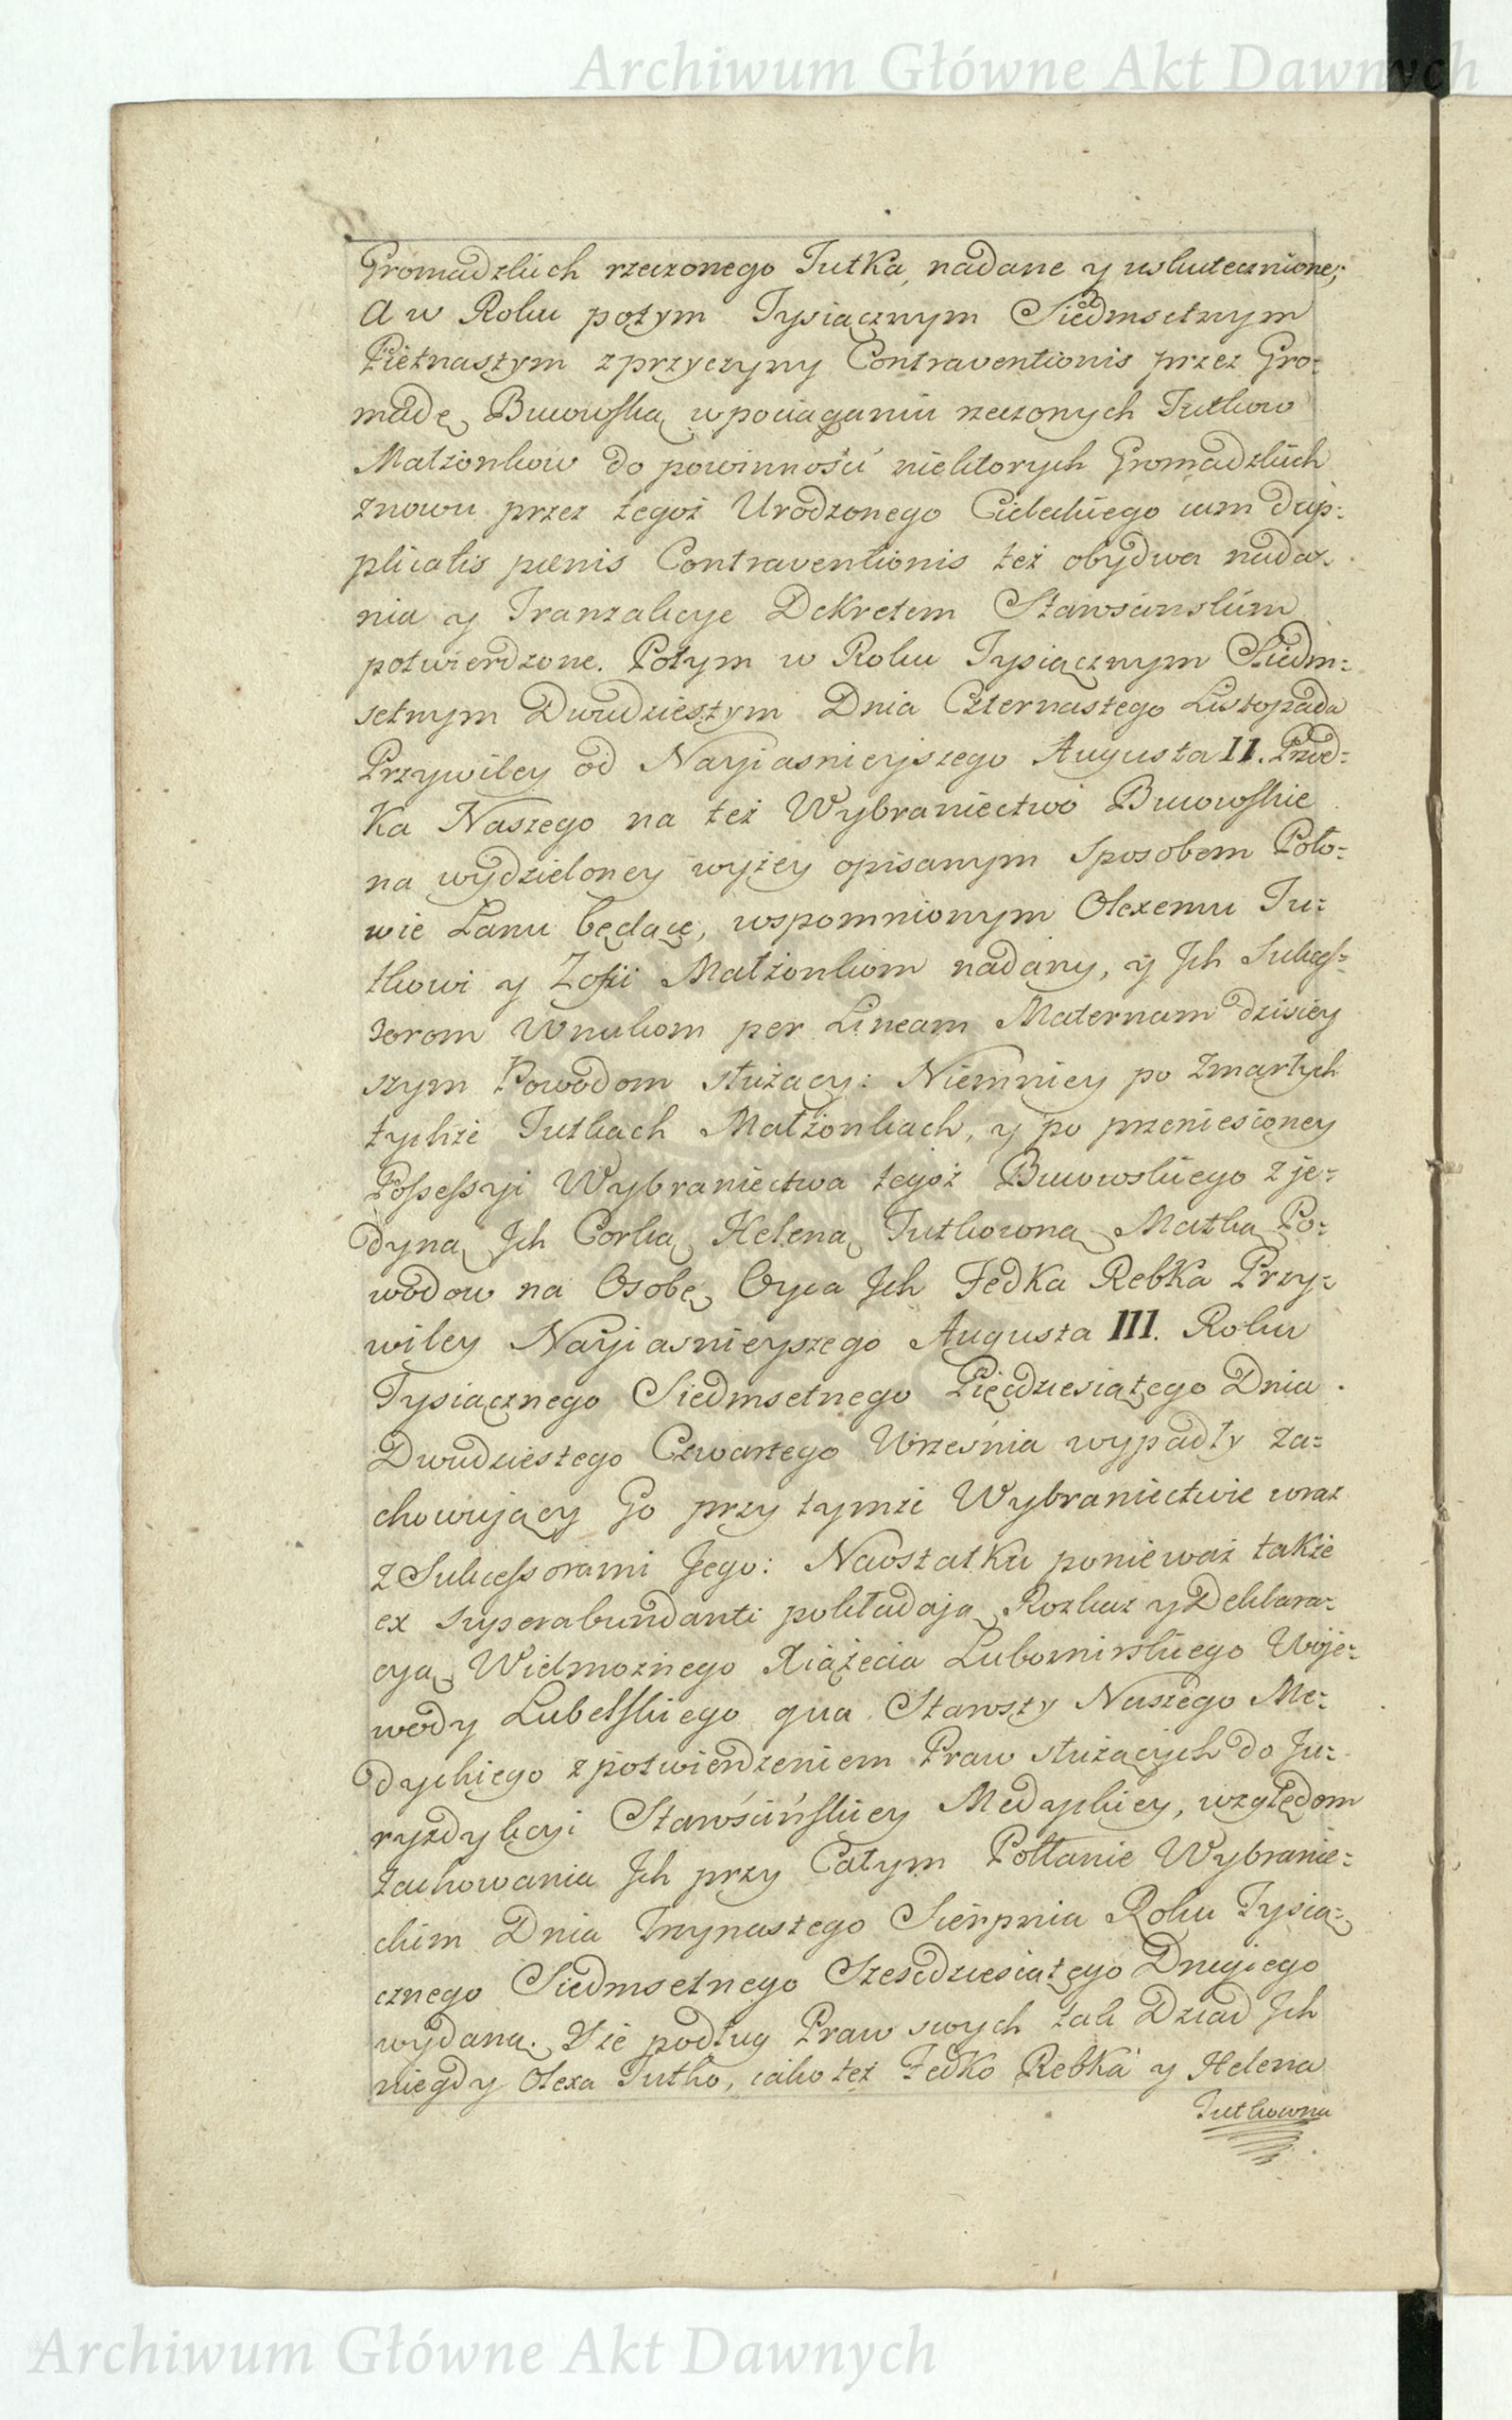 Archiwum Główne Akt Dawnych
Gromadzkich rzeczonego Tutka, nadane y uskutecznione;
A w Roku potym Tysiącznym Siedmsetnym
Piętnastym z przyczyny Contraventionis przez Gro-
madę Bucowską w pociąganiu rzeczonych Tutkow
Małżonkow do powinności niektorych Gromadzkich
znowu przez tegoż Urodzonego Cieleckiego cum dup-
plicatis pœnis Contraventionis też obydwa nada-
nia y Tranzakcye Dekretem Starościnskim
potwierdzone. Potym w Roku Tysiącznym Siedm-
setnym Dwudziestym Dnia Czternastego Listopada
Przywiley od Nayiasnieyszego Augusta II. Przod-
ka Naszego na też Wybraniectwo Bucowskie
na wydzieloney wyżey opisanym sposobem Poło-
wie Łanu będące, wspomnionym Olexemu Tu-
tkowi y Zofii Małżonkom nadany, y Jch Sukceß-
sorom Wnukom per Lineam Maternam dzisiey
szym Powodom służący: Niemniey po zmarłych
tychże Tutkach Małżonkach, y po przeniesioney
Poßeßyi Wybraniectwa tegoż Bucowskiego z je-
dyną Jch Corką Heleną Tutkowną Matką Po-
wodow na Osobę Oyca Jch Fedka Rebka Przy-
wiley Nayiasnieyszego Augusta III. Roku
Tysiącznego Siedmsetnego Pięcdziesiątego Dnia
Dwudziestego Czwartego Września wypadły za-
chowujący Go przy tymże Wybraniectwie wraz
z Sukceßorami Jego: Naostatku ponieważ także
ex superabundanti pokładają Rozkaz y Deklara-
cyą Wielmożnego Xiążęcia Lubomirskiego Woje-
wody Lubelskiego qua Starosty Naszego Me-
dyckiego z potwierdzeniem Praw służących do Ju-
ryzdykcyi Starościńskiey Medyckiey, względem
zachowania Jch przy Całym Półłanie Wybranie-
ckim Dnia Trzynastego Sierpnia Roku Tysią-
cznego Siedmsetnego Szescdziesiątego Drugiego
wydaną. Że podług Praw swych tak Dziad Jch
niegdy Olexa Tutko, iako też Fedko Rebka y Helena
Tutkowna
Archiwum Główne Akt Dawnych